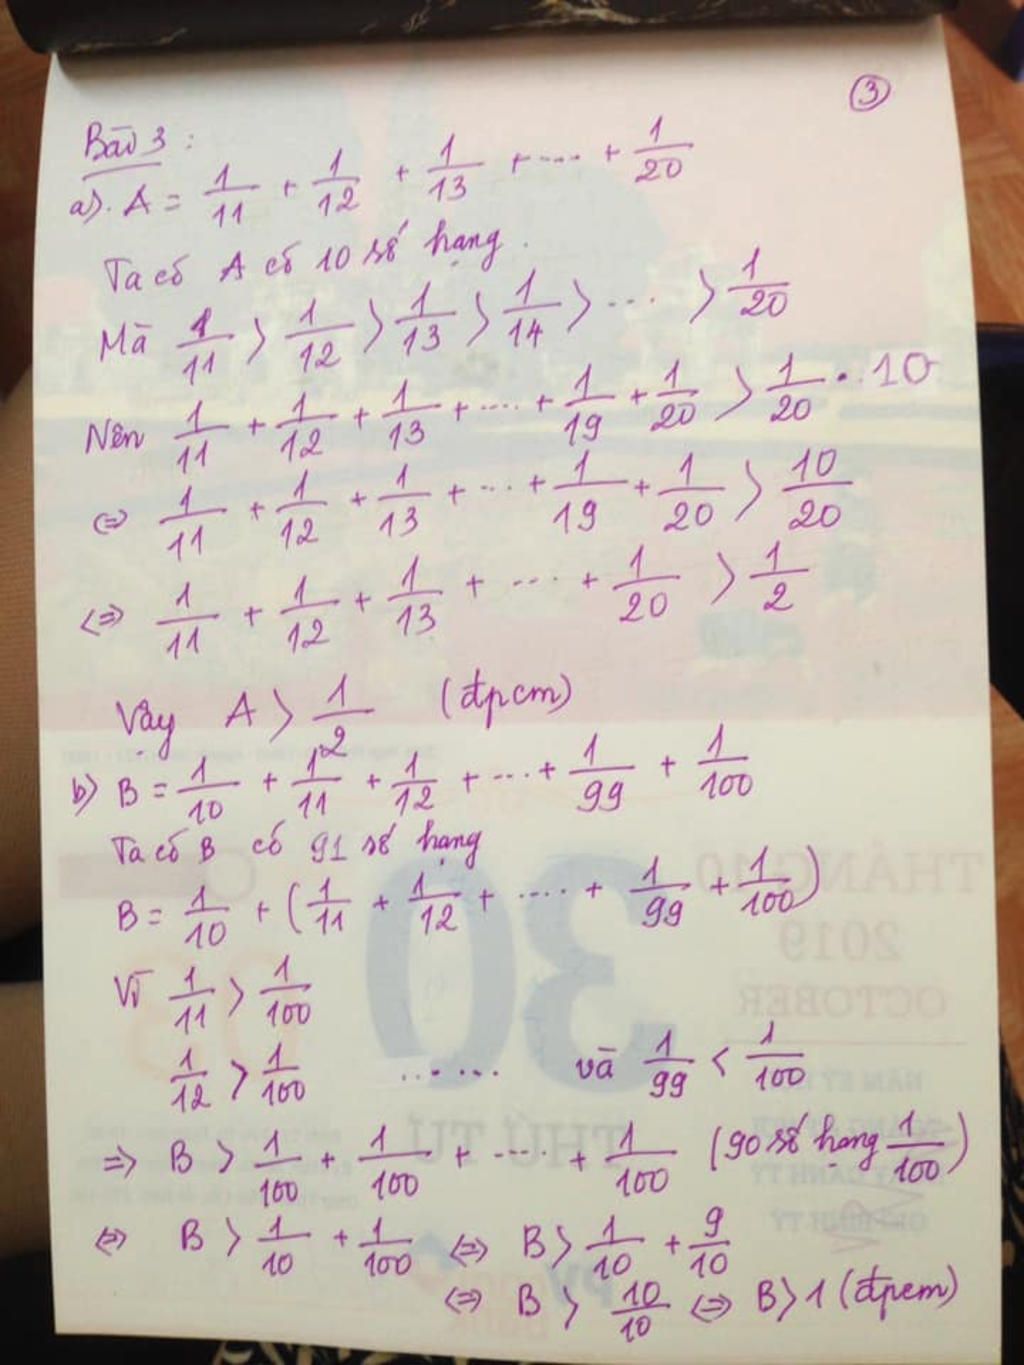 ③
Bài 3 :
a). A = 1/11 + 1/12 + 1/13 + .... + 1/20
Ta có A có 10 số hạng.
Mà 1/11 > 1/12 > 1/13 > 1/14 > .... > 1/20
Nên 1/11 + 1/12 + 1/13 + .... + 1/19 + 1/20 > 1/20 . 10
<=> 1/11 + 1/12 + 1/13 + ... + 1/19 + 1/20 > 10/20
<=> 1/11 + 1/12 + 1/13 + .... + 1/20 > 1/2
Vậy A > 1/2 (đpcm)
b) B = 1/10 + 1/11 + 1/12 + ... + 1/99 + 1/100
Ta có B có 91 số hạng
B = 1/10 + (1/11 + 1/12 + .... + 1/99 + 1/100)
Vì 1/11 > 1/100
1/12 > 1/100 ...... và 1/99 < 1/100
=> B > 1/100 + 1/100 + ..... + 1/100 (90 số hạng 1/100)
<=> B > 1/10 + 1/100 <=> B > 1/10 + 9/10
<=> B > 10/10 <=> B > 1 (đpcm)
THÁNG 10
2019
OCTOBER
30
THỨ TƯ